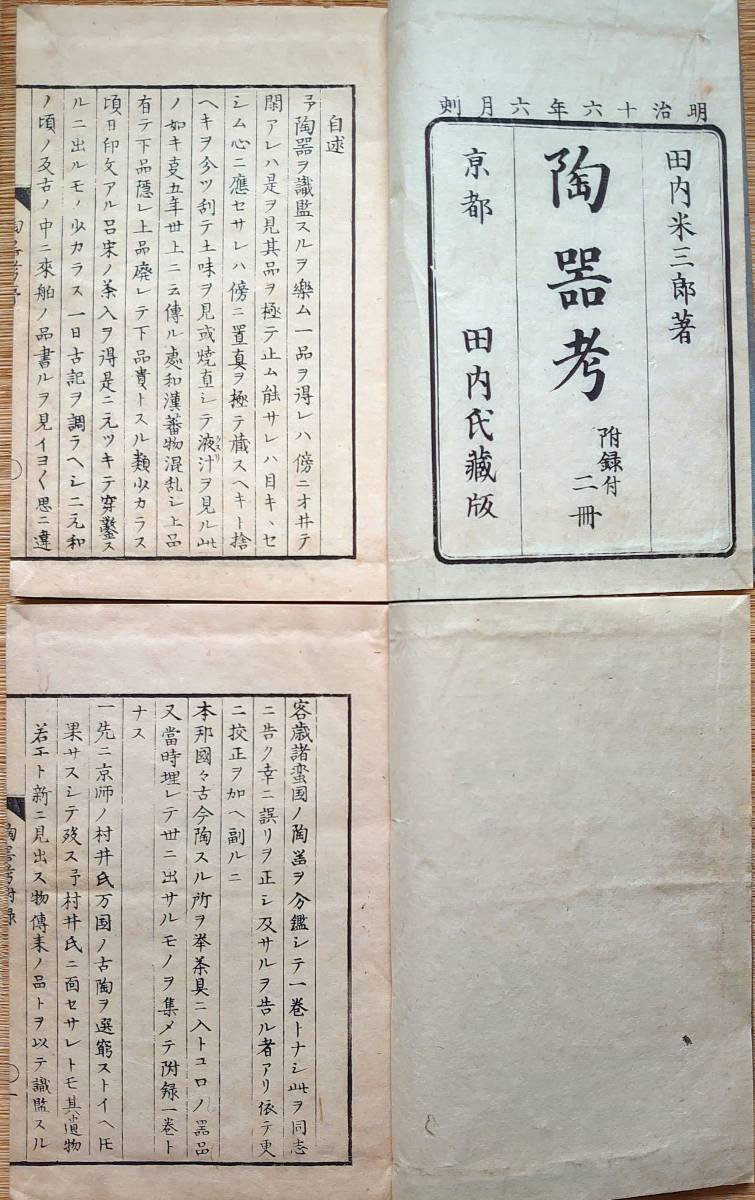 明治十六年六月刻
田内米三郎著
陶器考
附録付
二冊
京都
田内氏藏版
自述
予陶器ヲ識監スルヲ樂ム一品ヲ得レハ傍ニオ井テ
閑アレハ是ヲ見其品ヲ極テ止ム能サレハ目キヽセ
シム心ニ應セサレハ傍ニ置真ヲ極テ蔵スヘキト捨
ヘキヲ分ツ刮テ土味ヲ見或焼直シテ液汁ヲ見ル此
クスリ
ノ如キ叓五年丗上ニ云傳ル處和漢蕃物混乱シ上品
有テ下品隠レ上品廃レテ下品貴トスル類少カラス
頃日印文アル呂宋ノ茶入ヲ得是ニ元ツキテ穿鑿ス
ルニ出ルモノ少カラス一日古記ヲ調ラヘシニ元和
ノ頃ノ反古ノ中ニ來舶ノ品書ルヲ見イヨく思ニ違
陶器考序
客歳諸蛮国ノ陶器ヲ分鑑シテ一巻トナシ此ヲ同志
ニ告ク幸ニ誤リヲ正シ及サルヲ告ル者アリ依テ更
ニ挍正ヲ加ヘ副ルニ
本邦國々古今陶スル所ヲ挙茶具ニ入トコロノ器品
又當時埋レテ丗ニ出サルモノヲ集メテ附録一巻ト
ナス
一先ニ京师ノ村井氏万国ノ古陶ヲ選窮ストイヘ𪜈
果サスシテ殁ス予村井氏ニ面セサレトモ其遺物
若干ト新ニ見出ス物傳来ノ品トヲ以テ識監スル
陶器考附録
一